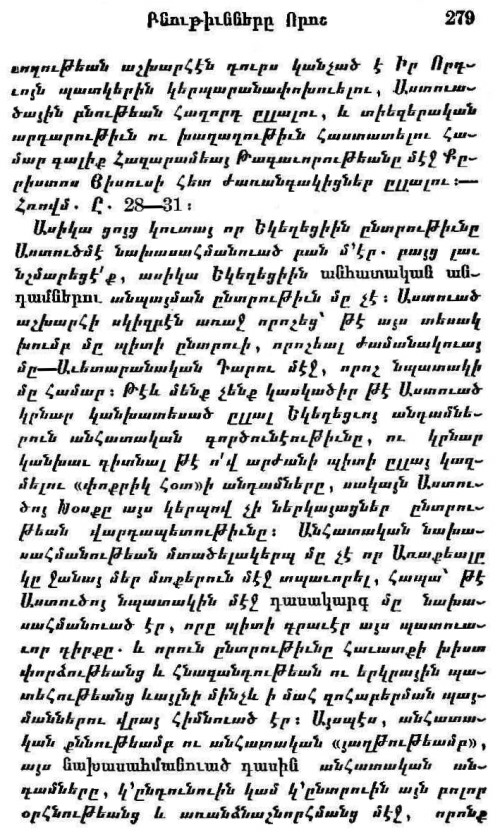 Բնութիւնները Որոշ 279
տողութեան աշխարհէն դուրս կանչած է Իր Որդ-
ւոյն պատկերին կերպարանափոխուելու, Աստուա-
ծային բնութեան Հաղորդ ըլլալու, և տիեզերական
արդարութիւն ու խաղաղութիւն Հաստատելու Հա-
մար գալիք Հազարամեայ Թագաւորութեանը մէջ Քը-
րիստոս Յիսուսի Հետ Ժառանգակիցներ ըլլալու։—
Հռովմ. Ը. 28—31։
Ասիկա ցոյց կուտայ որ Եկեղեցիին ընտրութիւնը
Աստուծմէ նախասահմանուած բան մ՚էր. բայց լաւ
նշմարեցէ՛ք, ասիկա Եկեղեցիին անհատական ան-
դամներու անպայման ընտրութիւն մը չէ։ Աստուած
աշխարհի սկիզբէն առաջ որոշեց՝ թէ այս տեսակ
խումբ մը պիտի ընտրուի, որոշեալ ժամանակուայ
մը—Աւետարանական Դարու մէջ, որոշ նպատակի
մը Համար։ Թէև մենք չենք կասկածիր թէ Աստուած
կրնար կանխատեսած ըլլալ Եկեղեցւոյ անդամնե-
րուն անհատական գործունէութիւնը, ու կրնար
կանխաւ գիտնալ թէ ո՛վ արժանի պիտի ըլլայ կազ-
մելու «փոքրիկ Հօտ»ի անդամները, սակայն Աստու-
ծոյ Խօսքը այս կերպով չի ներկայացներ ընտրու-
թեան վարդապետութիւնը։ Անհատական նախա-
սահմանութեան մտածելակերպ մը չէ որ Առաքեալը
կը ջանայ մեր մտքերուն մէջ տպաւորել, Հապա՝ թէ
Աստուծոյ նպատակին մէջ դասակարգ մը նախա-
սահմանուած էր, որը պիտի գրաւէր այս պատուա-
ւոր դիրքը. և որուն ընտրութիւնը Հաւատքի խիստ
փորձութեանց և Հնազանդութեան ու երկրային պա-
տեհութեանց ևայլնի մինչև ի մահ զոհաբերման պայ-
մաններու վրայ Հիմնուած էր։ Այսպէս, անհատա-
կան քննութեամբ ու անհատական «յաղթութեամբ»,
այս նախասահմանուած դասին անհատական ան-
դամները, կ՚ընդունուին կամ կ՚ընտրուին այն բոլոր
օրհնութեանց և առանձնաշնորհմանց մէջ, որոնք